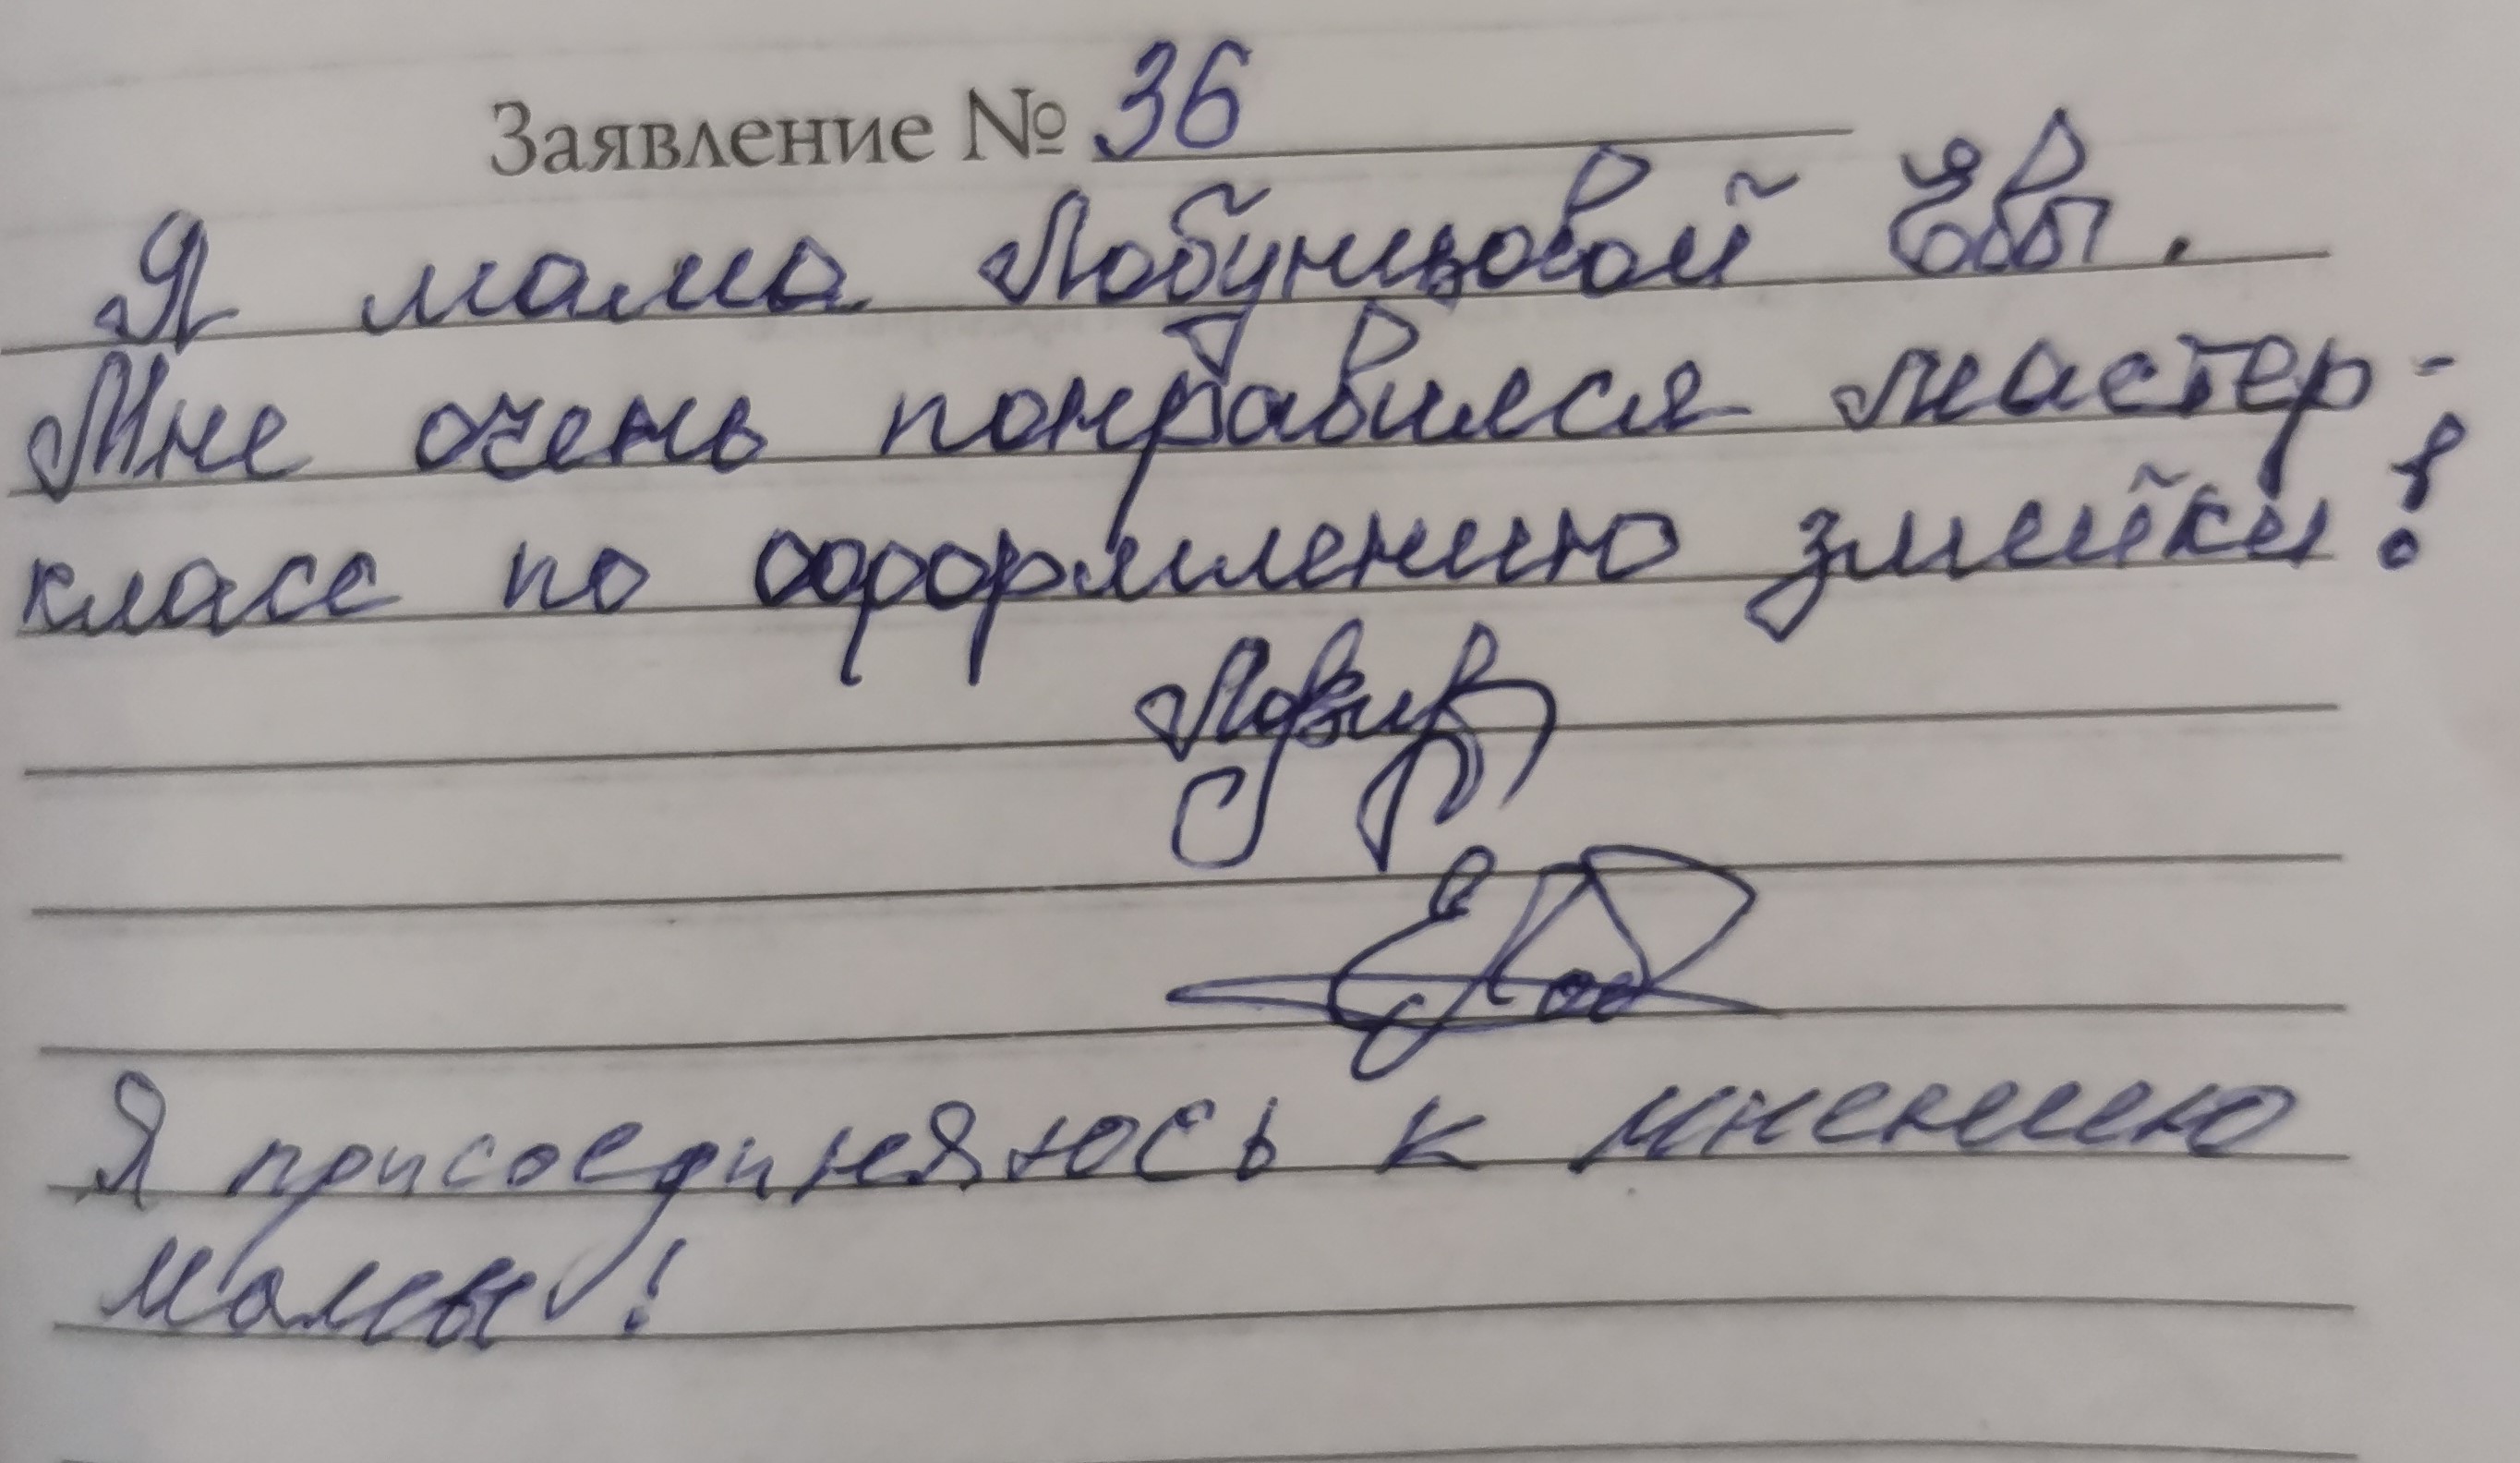 Заявление № 36
Я мама Лобунцовой Евы.
Мне очень понравился мастер-
класс по оформлению змейки!
Я присоединяюсь к мнению
мамы!